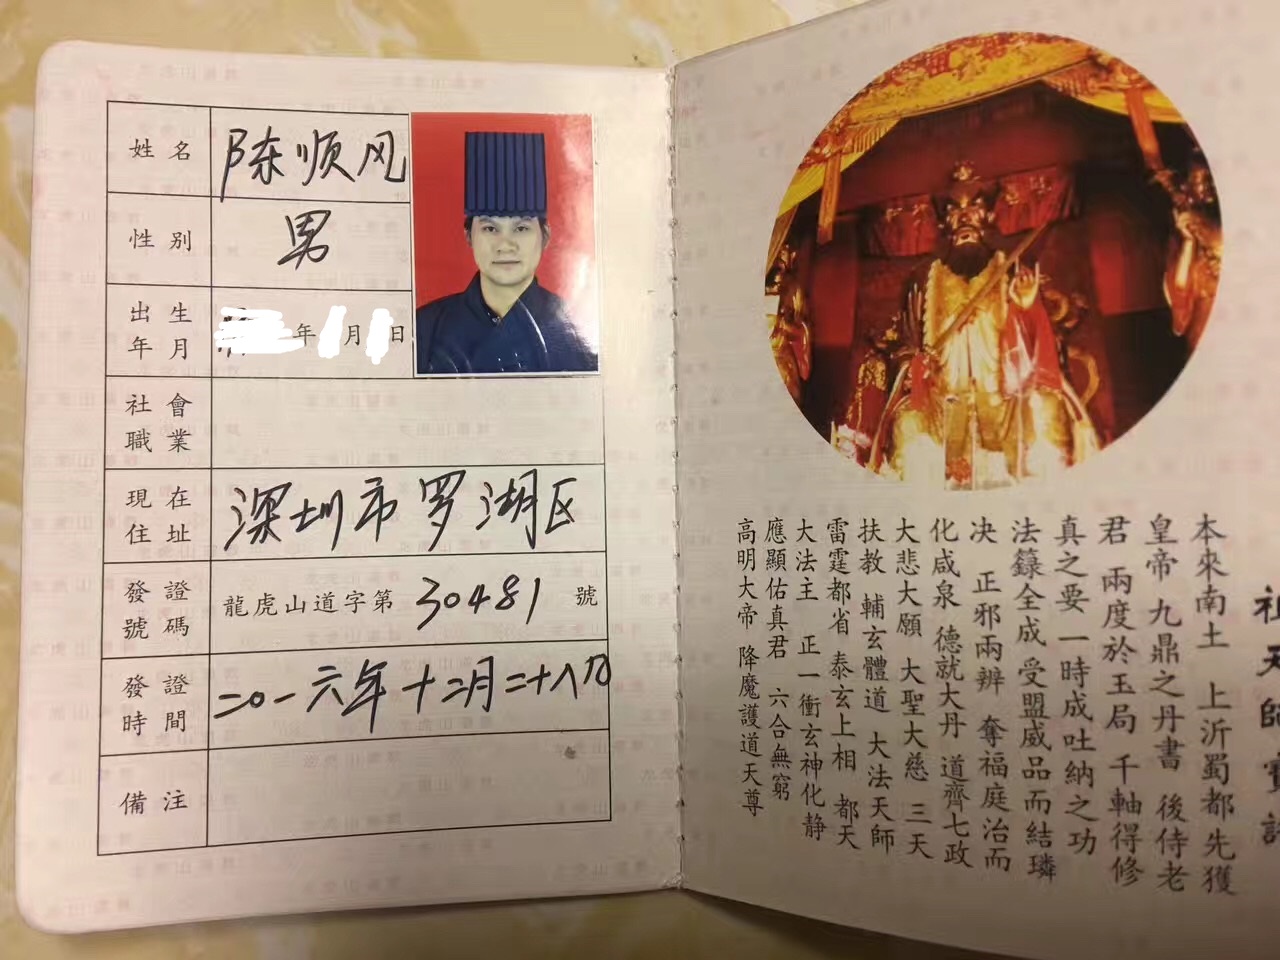 姓名 陈顺风
性别 男
出生年月 年 月 日
社會職業
現在住址 深圳市罗湖区
發證號碼 龍虎山道字第 30481 號
發證時間 二〇一六年十二月二十八日
備注
祖天師寶誥
本來南土 上沂蜀都先獲
皇帝 九鼎之丹書 後侍老
君 兩度於玉局 千軸得修
真之要 一時成吐納之功
法籙全成 受盟威品而結璘
决 正邪兩辨 奪福庭治而
化咸泉 德就大丹 道齊七政
大悲大願 大聖大慈 三天
扶教 輔玄體道 大法天師
雷霆都省 泰玄上相 都天
大法主 正一衝玄神化静
應顯佑真君 六合無窮
高明大帝 降魔護道天尊